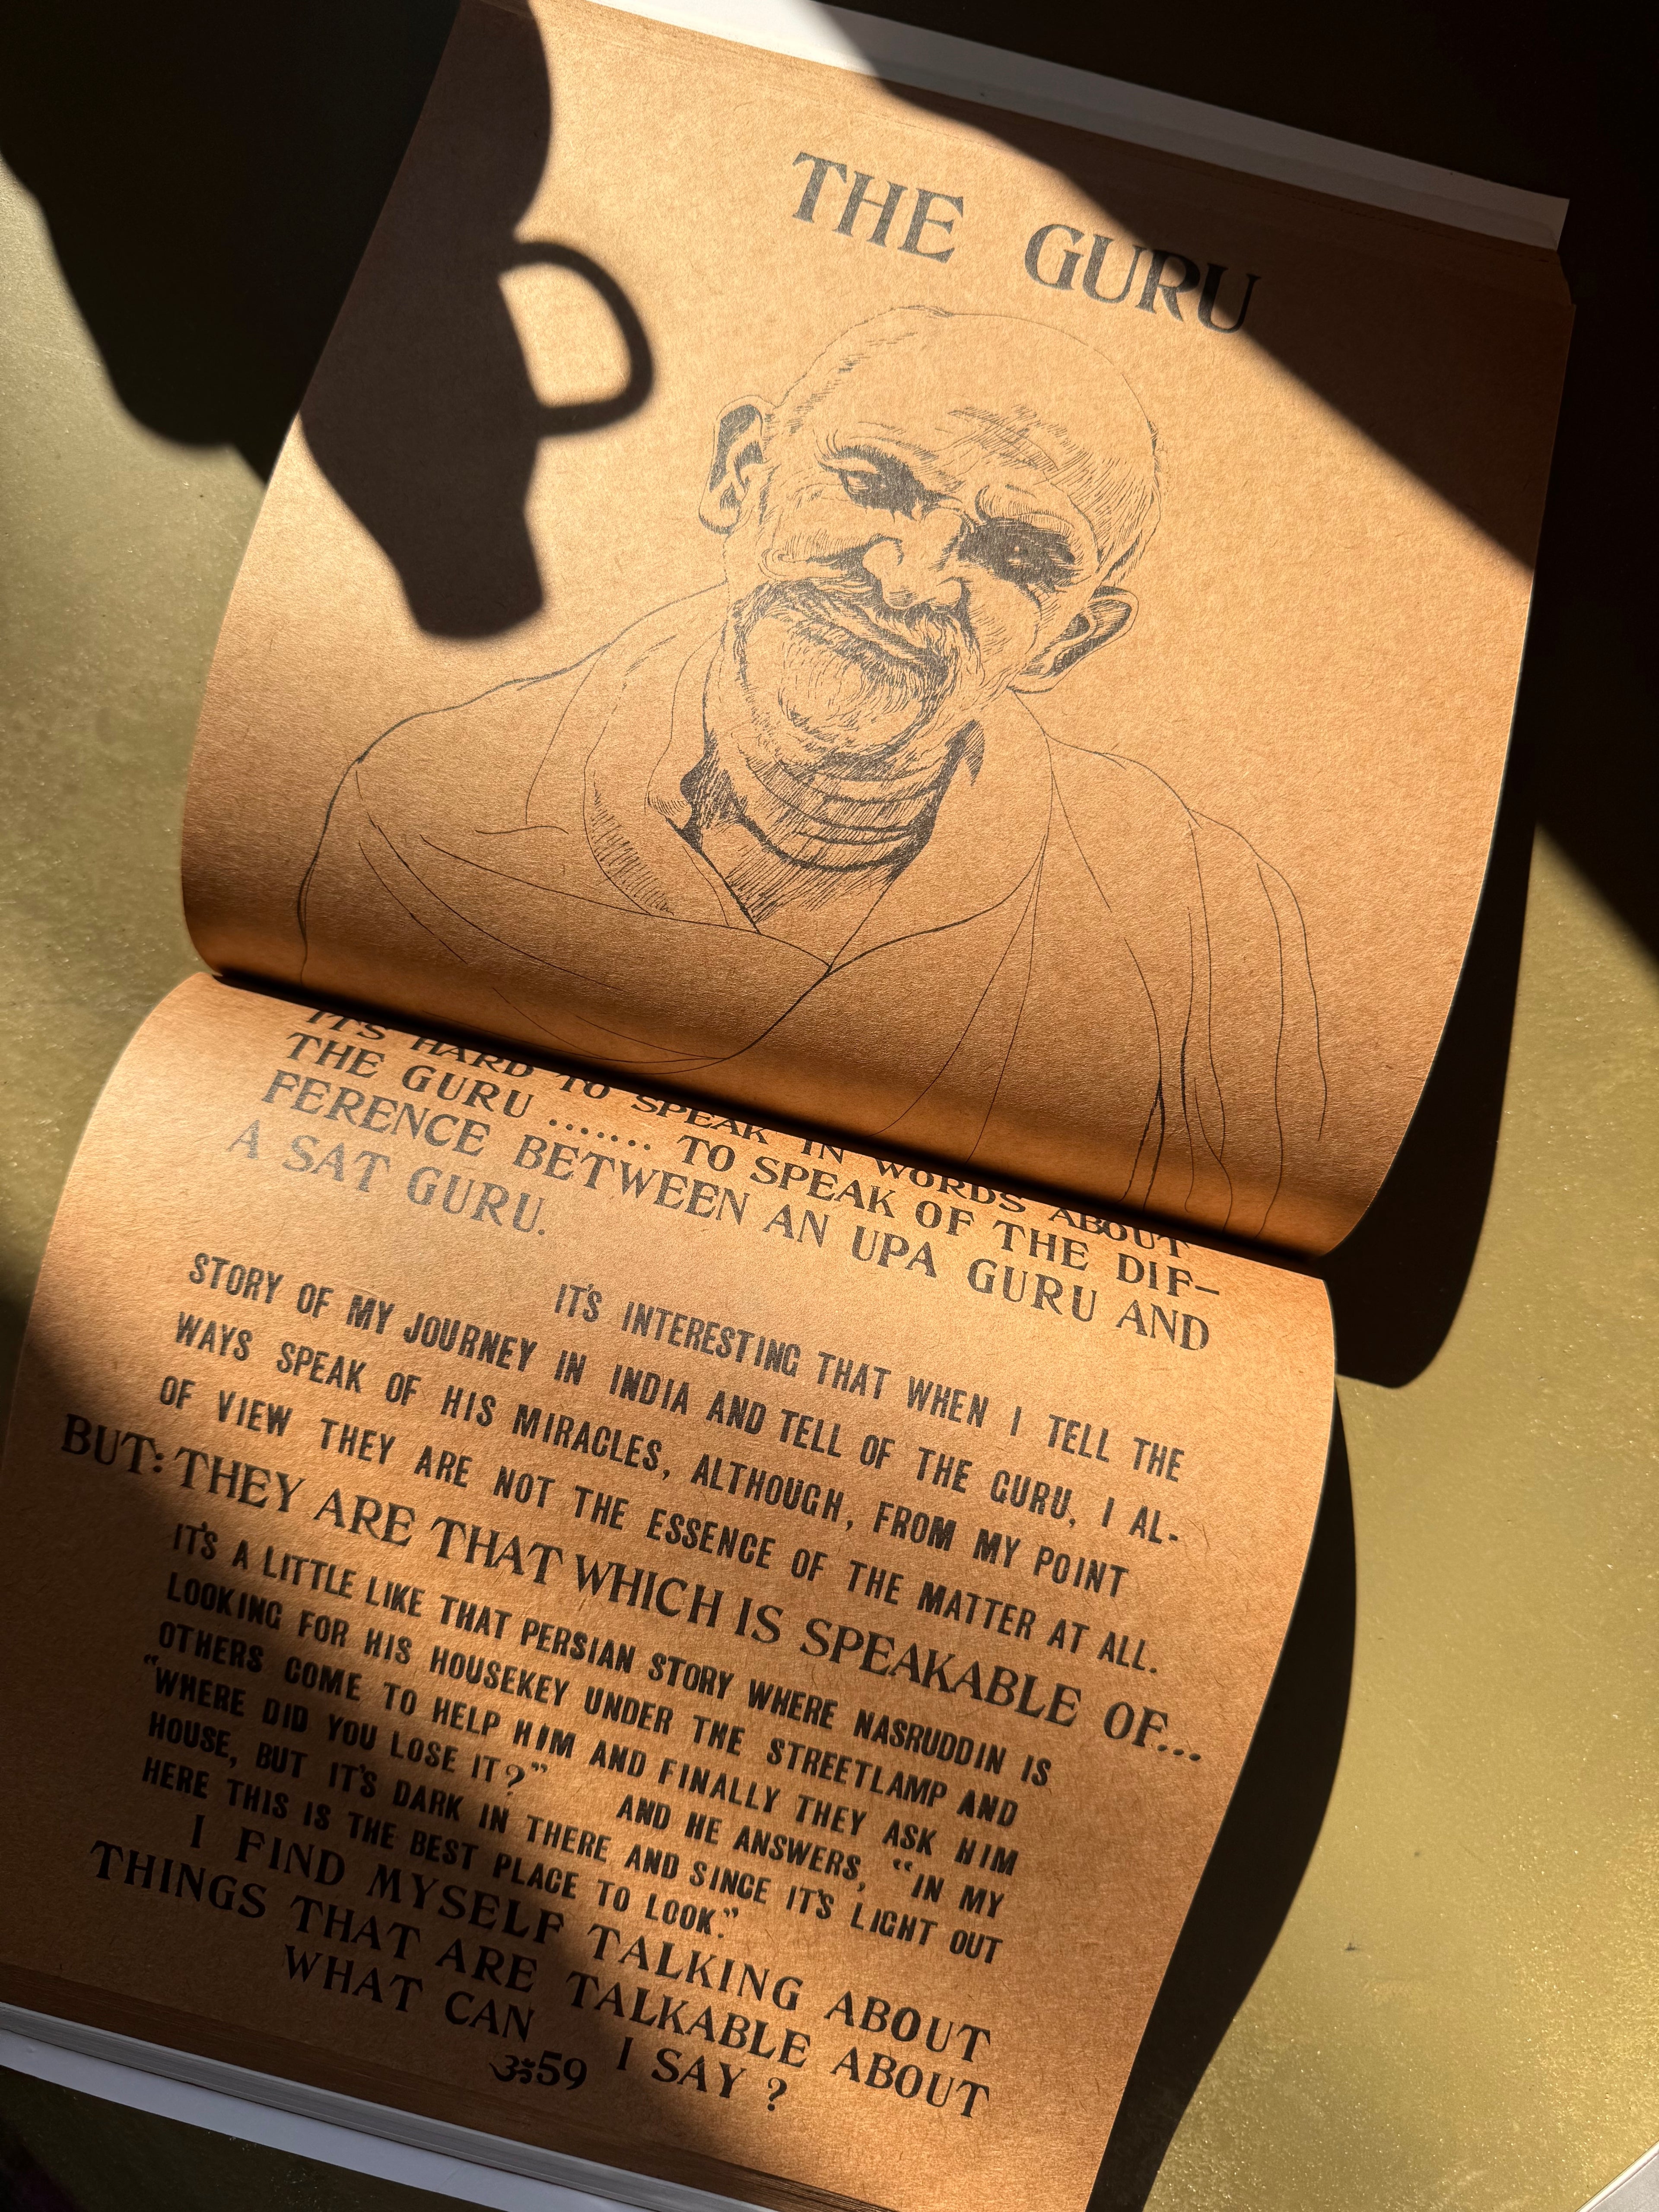 THE GURU
IT'S HARD TO SPEAK IN WORDS ABOUT
THE GURU ....... TO SPEAK OF THE DIF-
FERENCE BETWEEN AN UPA GURU AND
A SAT GURU.
IT'S INTERESTING THAT WHEN I TELL THE
STORY OF MY JOURNEY IN INDIA AND TELL OF THE GURU, I AL-
WAYS SPEAK OF HIS MIRACLES, ALTHOUGH, FROM MY POINT
OF VIEW THEY ARE NOT THE ESSENCE OF THE MATTER AT ALL.
BUT: THEY ARE THAT WHICH IS SPEAKABLE OF...
IT'S A LITTLE LIKE THAT PERSIAN STORY WHERE NASRUDDIN IS
LOOKING FOR HIS HOUSEKEY UNDER THE STREETLAMP AND
OTHERS COME TO HELP HIM AND FINALLY THEY ASK HIM
“WHERE DID YOU LOSE IT?” AND HE ANSWERS, “IN MY
HOUSE, BUT IT'S DARK IN THERE AND SINCE IT'S LIGHT OUT
HERE THIS IS THE BEST PLACE TO LOOK.”
I FIND MYSELF TALKING ABOUT
THINGS THAT ARE TALKABLE ABOUT
WHAT CAN I SAY ?
ॐ59